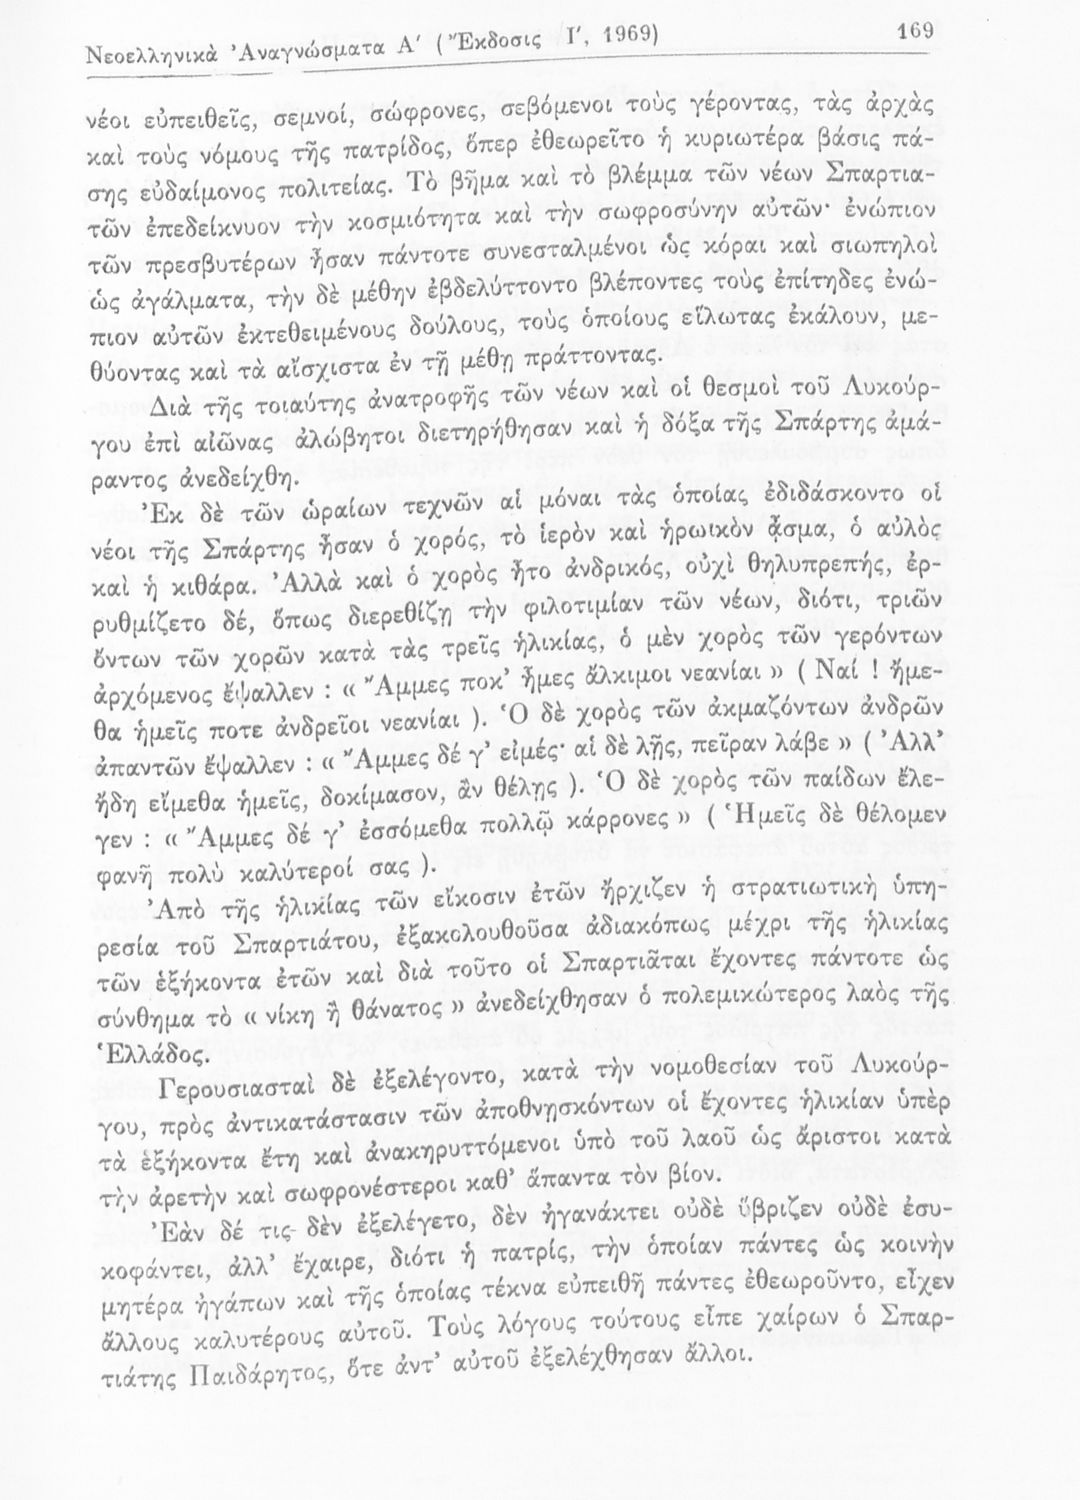 Νεοελληνικὰ Ἀναγνώσματα Α′ ( Ἔκδοσις Ι′, 1969) 169
νέοι εὐπειθεῖς, σεμνοί, σώφρονες, σεβόμενοι τοὺς γέροντας, τὰς ἀρχὰς
καὶ τοὺς νόμους τῆς πατρίδος, ὅπερ ἐθεωρεῖτο ἡ κυριωτέρα βάσις πά-
σης εὐδαίμονος πολιτείας. Τὸ βῆμα καὶ τὸ βλέμμα τῶν νέων Σπαρτια-
τῶν ἐπεδείκνυον τὴν κοσμιότητα καὶ τὴν σωφροσύνην αὐτῶν· ἐνώπιον
τῶν πρεσβυτέρων ἦσαν πάντοτε συνεσταλμένοι ὡς κόραι καὶ σιωπηλοὶ
ὡς ἀγάλματα, τὴν δὲ μέθην ἐβδελύττοντο βλέποντες τοὺς ἐπίτηδες ἐνώ-
πιον αὐτῶν ἐκτεθειμένους δούλους, τοὺς ὁποίους εἵλωτας ἐκάλουν, με-
θύοντας καὶ τὰ αἴσχιστα ἐν τῇ μέθῃ πράττοντας.
Διὰ τῆς τοιαύτης ἀνατροφῆς τῶν νέων καὶ οἱ θεσμοὶ τοῦ Λυκούρ-
γου ἐπὶ αἰῶνας ἀλώβητοι διετηρήθησαν καὶ ἡ δόξα τῆς Σπάρτης ἀμά-
ραντος ἀνεδείχθη.
Ἐκ δὲ τῶν ὡραίων τεχνῶν αἱ μόναι τὰς ὁποίας ἐδιδάσκοντο οἱ
νέοι τῆς Σπάρτης ἦσαν ὁ χορός, τὸ ἱερὸν καὶ ἡρωικὸν ᾆσμα, ὁ αὐλὸς
καὶ ἡ κιθάρα. Ἀλλὰ καὶ ὁ χορὸς ἦτο ἀνδρικός, οὐχὶ θηλυπρεπής, ἐρ-
ρυθμίζετο δέ, ὅπως διερεθίζῃ τὴν φιλοτιμίαν τῶν νέων, διότι, τριῶν
ὄντων τῶν χορῶν κατὰ τὰς τρεῖς ἡλικίας, ὁ μὲν χορὸς τῶν γερόντων
ἀρχόμενος ἔψαλλεν : « Ἄμμες ποκ’ ἦμες ἄλκιμοι νεανίαι » ( Ναί ! ἤμε-
θα ἡμεῖς ποτε ἀνδρεῖοι νεανίαι ). Ὁ δὲ χορὸς τῶν ἀκμαζόντων ἀνδρῶν
ἀπαντῶν ἔψαλλεν : « Ἄμμες δέ γ’ εἰμές· αἱ δὲ λῇς, πεῖραν λάβε » ( Ἀλλ’
ἤδη εἴμεθα ἡμεῖς, δοκίμασον, ἂν θέλῃς ). Ὁ δὲ χορὸς τῶν παίδων ἔλε-
γεν : « Ἄμμες δέ γ’ ἐσσόμεθα πολλῷ κάρρονες » ( Ἡμεῖς δὲ θέλομεν
φανῆ πολὺ καλύτεροί σας ).
Ἀπὸ τῆς ἡλικίας τῶν εἴκοσιν ἐτῶν ἤρχιζεν ἡ στρατιωτικὴ ὑπη-
ρεσία τοῦ Σπαρτιάτου, ἐξακολουθοῦσα ἀδιακόπως μέχρι τῆς ἡλικίας
τῶν ἑξήκοντα ἐτῶν καὶ διὰ τοῦτο οἱ Σπαρτιᾶται ἔχοντες πάντοτε ὡς
σύνθημα τὸ « νίκη ἢ θάνατος » ἀνεδείχθησαν ὁ πολεμικώτερος λαὸς τῆς
Ἑλλάδος.
Γερουσιασταὶ δὲ ἐξελέγοντο, κατὰ τὴν νομοθεσίαν τοῦ Λυκούρ-
γου, πρὸς ἀντικατάστασιν τῶν ἀποθνῃσκόντων οἱ ἔχοντες ἡλικίαν ὑπὲρ
τὰ ἑξήκοντα ἔτη καὶ ἀνακηρυττόμενοι ὑπὸ τοῦ λαοῦ ὡς ἄριστοι κατὰ
τὴν ἀρετὴν καὶ σωφρονέστεροι καθ’ ἅπαντα τὸν βίον.
Ἐὰν δέ τις δὲν ἐξελέγετο, δὲν ἠγανάκτει οὐδὲ ὕβριζεν οὐδὲ ἐσυ-
κοφάντει, ἀλλ’ ἔχαιρε, διότι ἡ πατρίς, τὴν ὁποίαν πάντες ὡς κοινὴν
μητέρα ἠγάπων καὶ τῆς ὁποίας τέκνα εὐπειθῆ πάντες ἐθεωροῦντο, εἶχεν
ἄλλους καλυτέρους αὐτοῦ. Τοὺς λόγους τούτους εἶπε χαίρων ὁ Σπαρ-
τιάτης Παιδάρητος, ὅτε ἀντ’ αὐτοῦ ἐξελέχθησαν ἄλλοι.